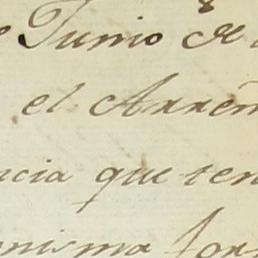 Junio de
el Arren
ncia que ten
misma for